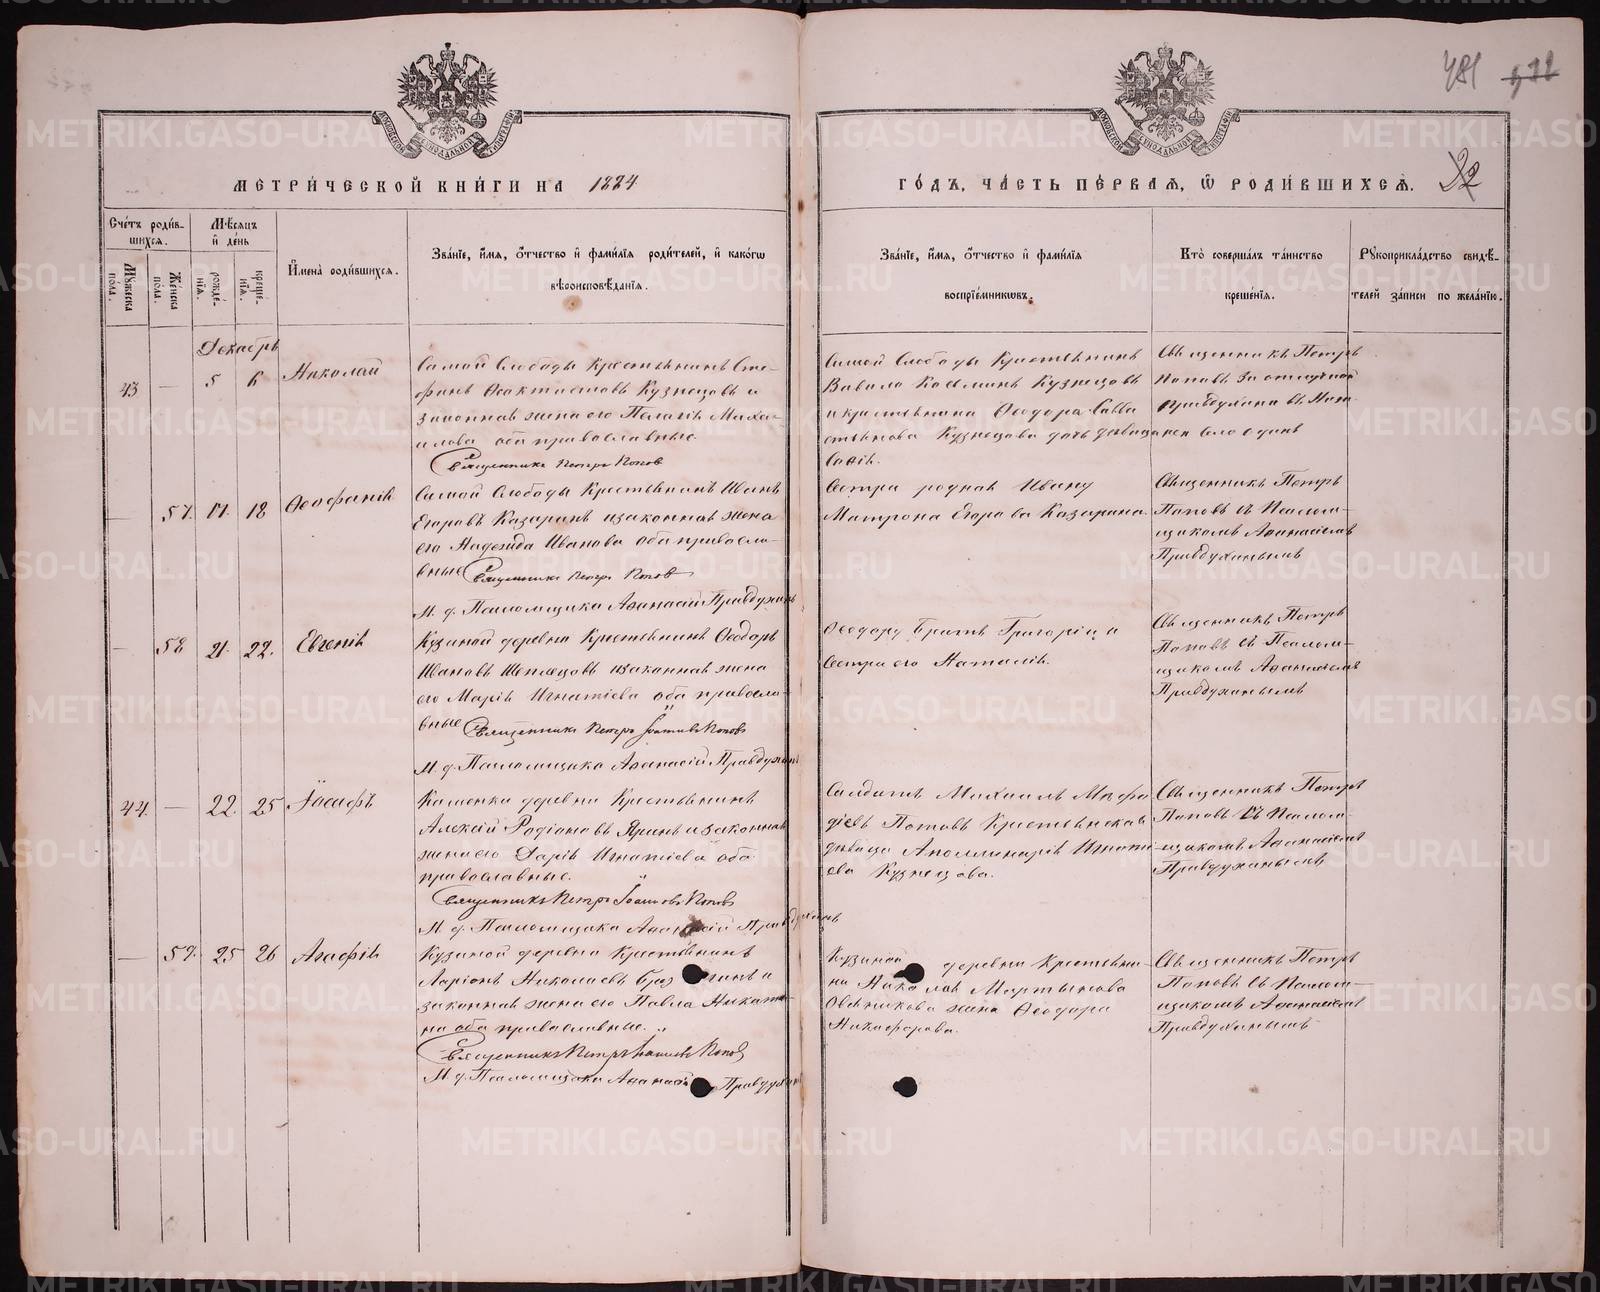 481
32
МЕТРИ́ЧЕСКОЙ КНИ́ГИ НА 1884
ГО́ДЪ, ЧА́СТЬ ПЕ́РВАЯ, Ѡ РОДИ́ВШИХСЯ.
Сче́тъ роди́вшихся.
Му́жеска по́ла.
Же́нска по́ла.
Мѣ́сяцъ и̂ де́нь
рожде́нїя.
креще́нїя.
И̂мена̀ роди́вшихся.
Зва́нїе, и̂́мя, ѻ̂́тчество и̂ фами́лїя роди́телей, и̂ како́гѡ
вѣроисповѣ́данїя.
Зва́нїе, и̂́мя, ѻ̂́тчество и̂ фами́лїя
воспрїе́мникѡвъ.
Кто̀ соверша́лъ та́инство
креще́нїя.
Рукоприкла́дство свидѣ́-
телей за́писи по жела́нїю.
Декабрь
43
—
5
6
Николай
Самой Слободы Крестьянинъ Сте-
фанъ Ѳеактистовъ Кузнецовъ и
законная жена его Пелагія Михаи-
лова оба православные.
Священникъ Петръ Поповъ
Самой Слободы Крестьянинъ
Вавила Козьминъ Кузнецовъ
и крестьянина Ѳеодора Савва-
стьянова Кузнецова дочь дѣвица
Священникъ Петръ
Поповъ за отлучкой
Правдухина въ
—
57.
17.
18
Ѳеофанія
Самой Слободы Крестьянинъ Иванъ
Егоровъ Казаринъ и законная жена
его Надежда Ивановa оба правосла-
вные Священникъ Петръ Поповъ
И. д. Псаломщика Аѳанасій Правдухинъ
Сестра родная Ивану
Матрона Егорова Казарина.
Священникъ Петръ
Поповъ съ Псалом-
щикомъ Аѳанасіемъ
Правдухинымъ
—
58
21.
22.
Евгенія
Кузиной деревни Крестьянинъ Ѳеодоръ
Ивановъ и законная жена
его Марія Игнатіева оба правосла-
вные Священникъ Петръ Іоанновъ Поповъ
И. д. Псаломщика Аѳанасій Правдухинъ
Ѳеодору братъ Григорій и
Сестра его Наталія.
Священникъ Петръ
Поповъ съ Псалом-
щикомъ Аѳанасіемъ
Правдухинымъ
44.
—
22.
25
Іоасафъ
Каменки деревни Крестьянинъ
Алексій Родіоновъ Яринъ и законная
жена его Дарія Игнатіева оба
православные.
Священникъ Петръ Іоанновъ Поповъ
И. д. Псаломщика Аѳанасій Правдухинъ
Солдатъ Михаилъ Меѳо-
діевъ Поповъ Крестьянская
дѣвица Аполлинарія Игнатi-
ева Кузнецова.
Священникъ Петръ
Поповъ съ Псалом-
щикомъ Аѳанасіемъ
Правдухинымъ
—
59.
25
26
Агафія
Кузиной деревни Крестьянинъ
Ларіонъ Николаевъ и
законная жена его Павла Никити-
на оба православные.
Священникъ Петръ Іоанновъ Поповъ
И. д. Псаломщика Аѳанасій Правдухинъ
Кузиной деревни Крестьяни-
на Николая Мартынова
Овчинникова жена Ѳеодора
Никифорова.
Священникъ Петръ
Поповъ съ Псалом-
щикомъ Аѳанасіемъ
Правдухинымъ
METRIKI.GASO-URAL.RU